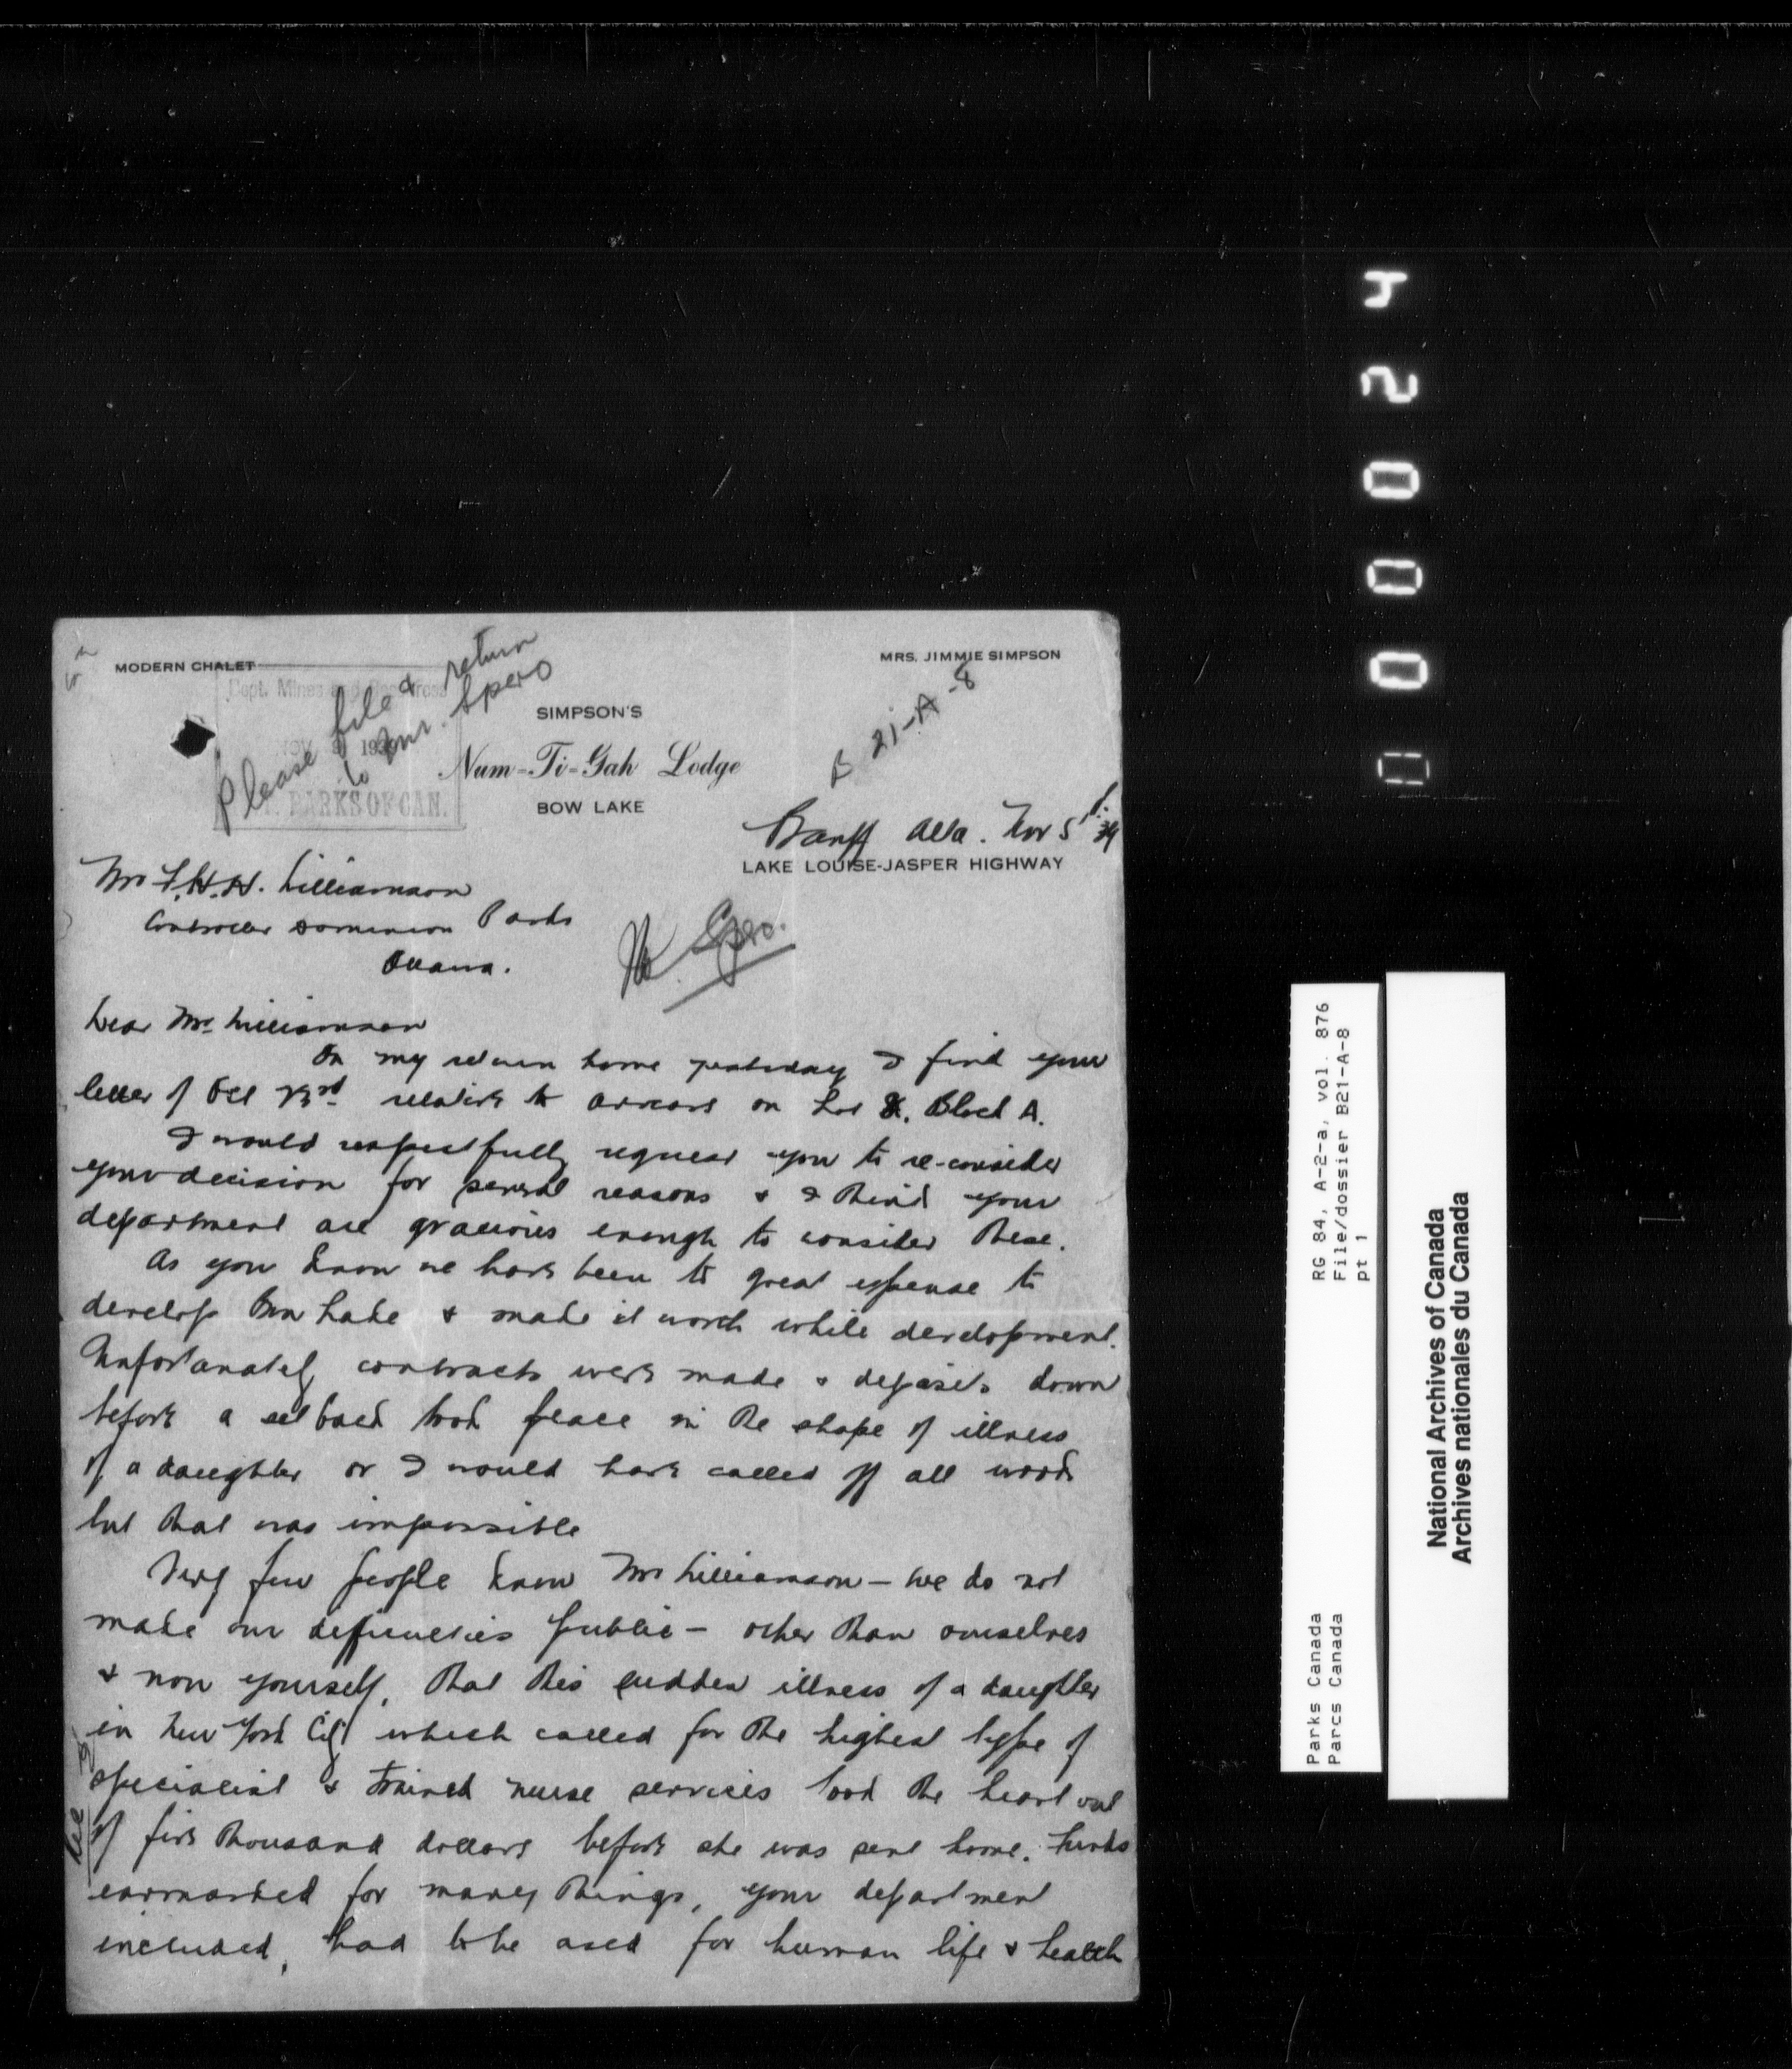 MODERN CHALET
MRS. JIMMIE SIMPSON
Dept. Mines and Resources
NOV 1939
PARKS OF CAN.
Please file & return
to Mr. Spero
SIMPSON'S
Num-Ti-Gah Lodge
BOW LAKE
B 21-A-8
Banff Alta. Nov 5th 39
LAKE LOUISE-JASPER HIGHWAY
Mr F.H.H. Williamson
Controller Dominion Parks
Ottawa.
Mr. Spero.
Dear Mr. Williamson
On my return home yesterday I find your
letter of Oct 23rd relative to arrears on Lot 8, Block A.
I would respectfully request you to re-consider
your decision for several reasons & I think your
department are gracious enough to consider these.
As you know we have been to great expense to
develop Bow Lake & make it worth while development.
Unfortunately contracts were made & deposits down
before a set back took place in the shape of illness
of a daughter or I would have called off all work
but that was impossible
Very few people know Mr Williamson - we do not
make our difficulties public - other than ourselves
& now yourself, that this sudden illness of a daughter
in New York City which called for the highest type of
specialist & trained nurse services took the heart out
of five thousand dollars before she was sent home. Funds
earmarked for many things, your department
included, had to be used for human life & health
00024
RG 84, A-2-a, vol. 876
File/dossier B21-A-8
pt 1
Parks Canada
Parcs Canada
National Archives of Canada
Archives nationales du Canada